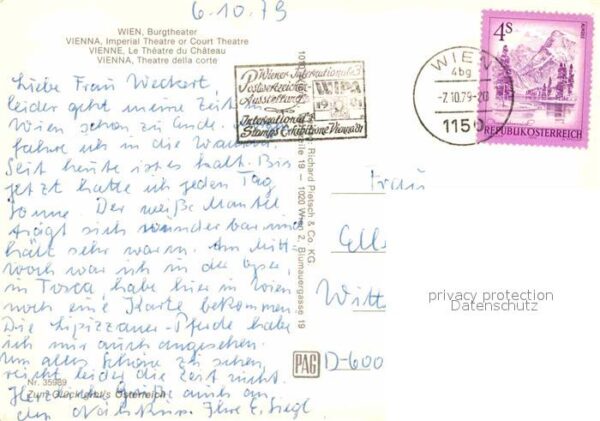 6.10.79
WIEN, Burgtheater
VIENNA, Imperial Theatre or Court Theatre
VIENNE, Le Théatre du Château
VIENNA, Theatre della corte
Liebe Frau Weckert,
leider geht meine Zeit
Wien schon zu Ende.
fahre ich in die
Seit heute ist es kalt. Bis
jetzt hatte ich jeden Tag
Sonne. Der weiße Mantel
trägt sich wunderbar und
hält sehr warm. Am Mitt-
woch war ich in der Oper,
in Tosca, habe hier in Wien
noch eine Karte bekommen.
Die Lipizzaner-Pferde habe
ich mir auch angesehen.
Um alles Schöne zu sehen,
reicht leider die Zeit nicht.
Herzliche Grüße auch an
den Ihre E. Siegl
Nr. 35989
Zum Glück gibt's Österreich
Wiener Internationale
Postwertzeichen
Ausstellung
WIPA
1981
International
Stamps Exhibition Vienna
WIEN
4bg
-7.10.79-20
1150
4S
REPUBLIK ÖSTERREICH
Richard Pietsch & Co. KG.
1020 Wien 2, Blumauergasse 19
PAG
Frau
Witt
D-600
privacy protection
Datenschutz